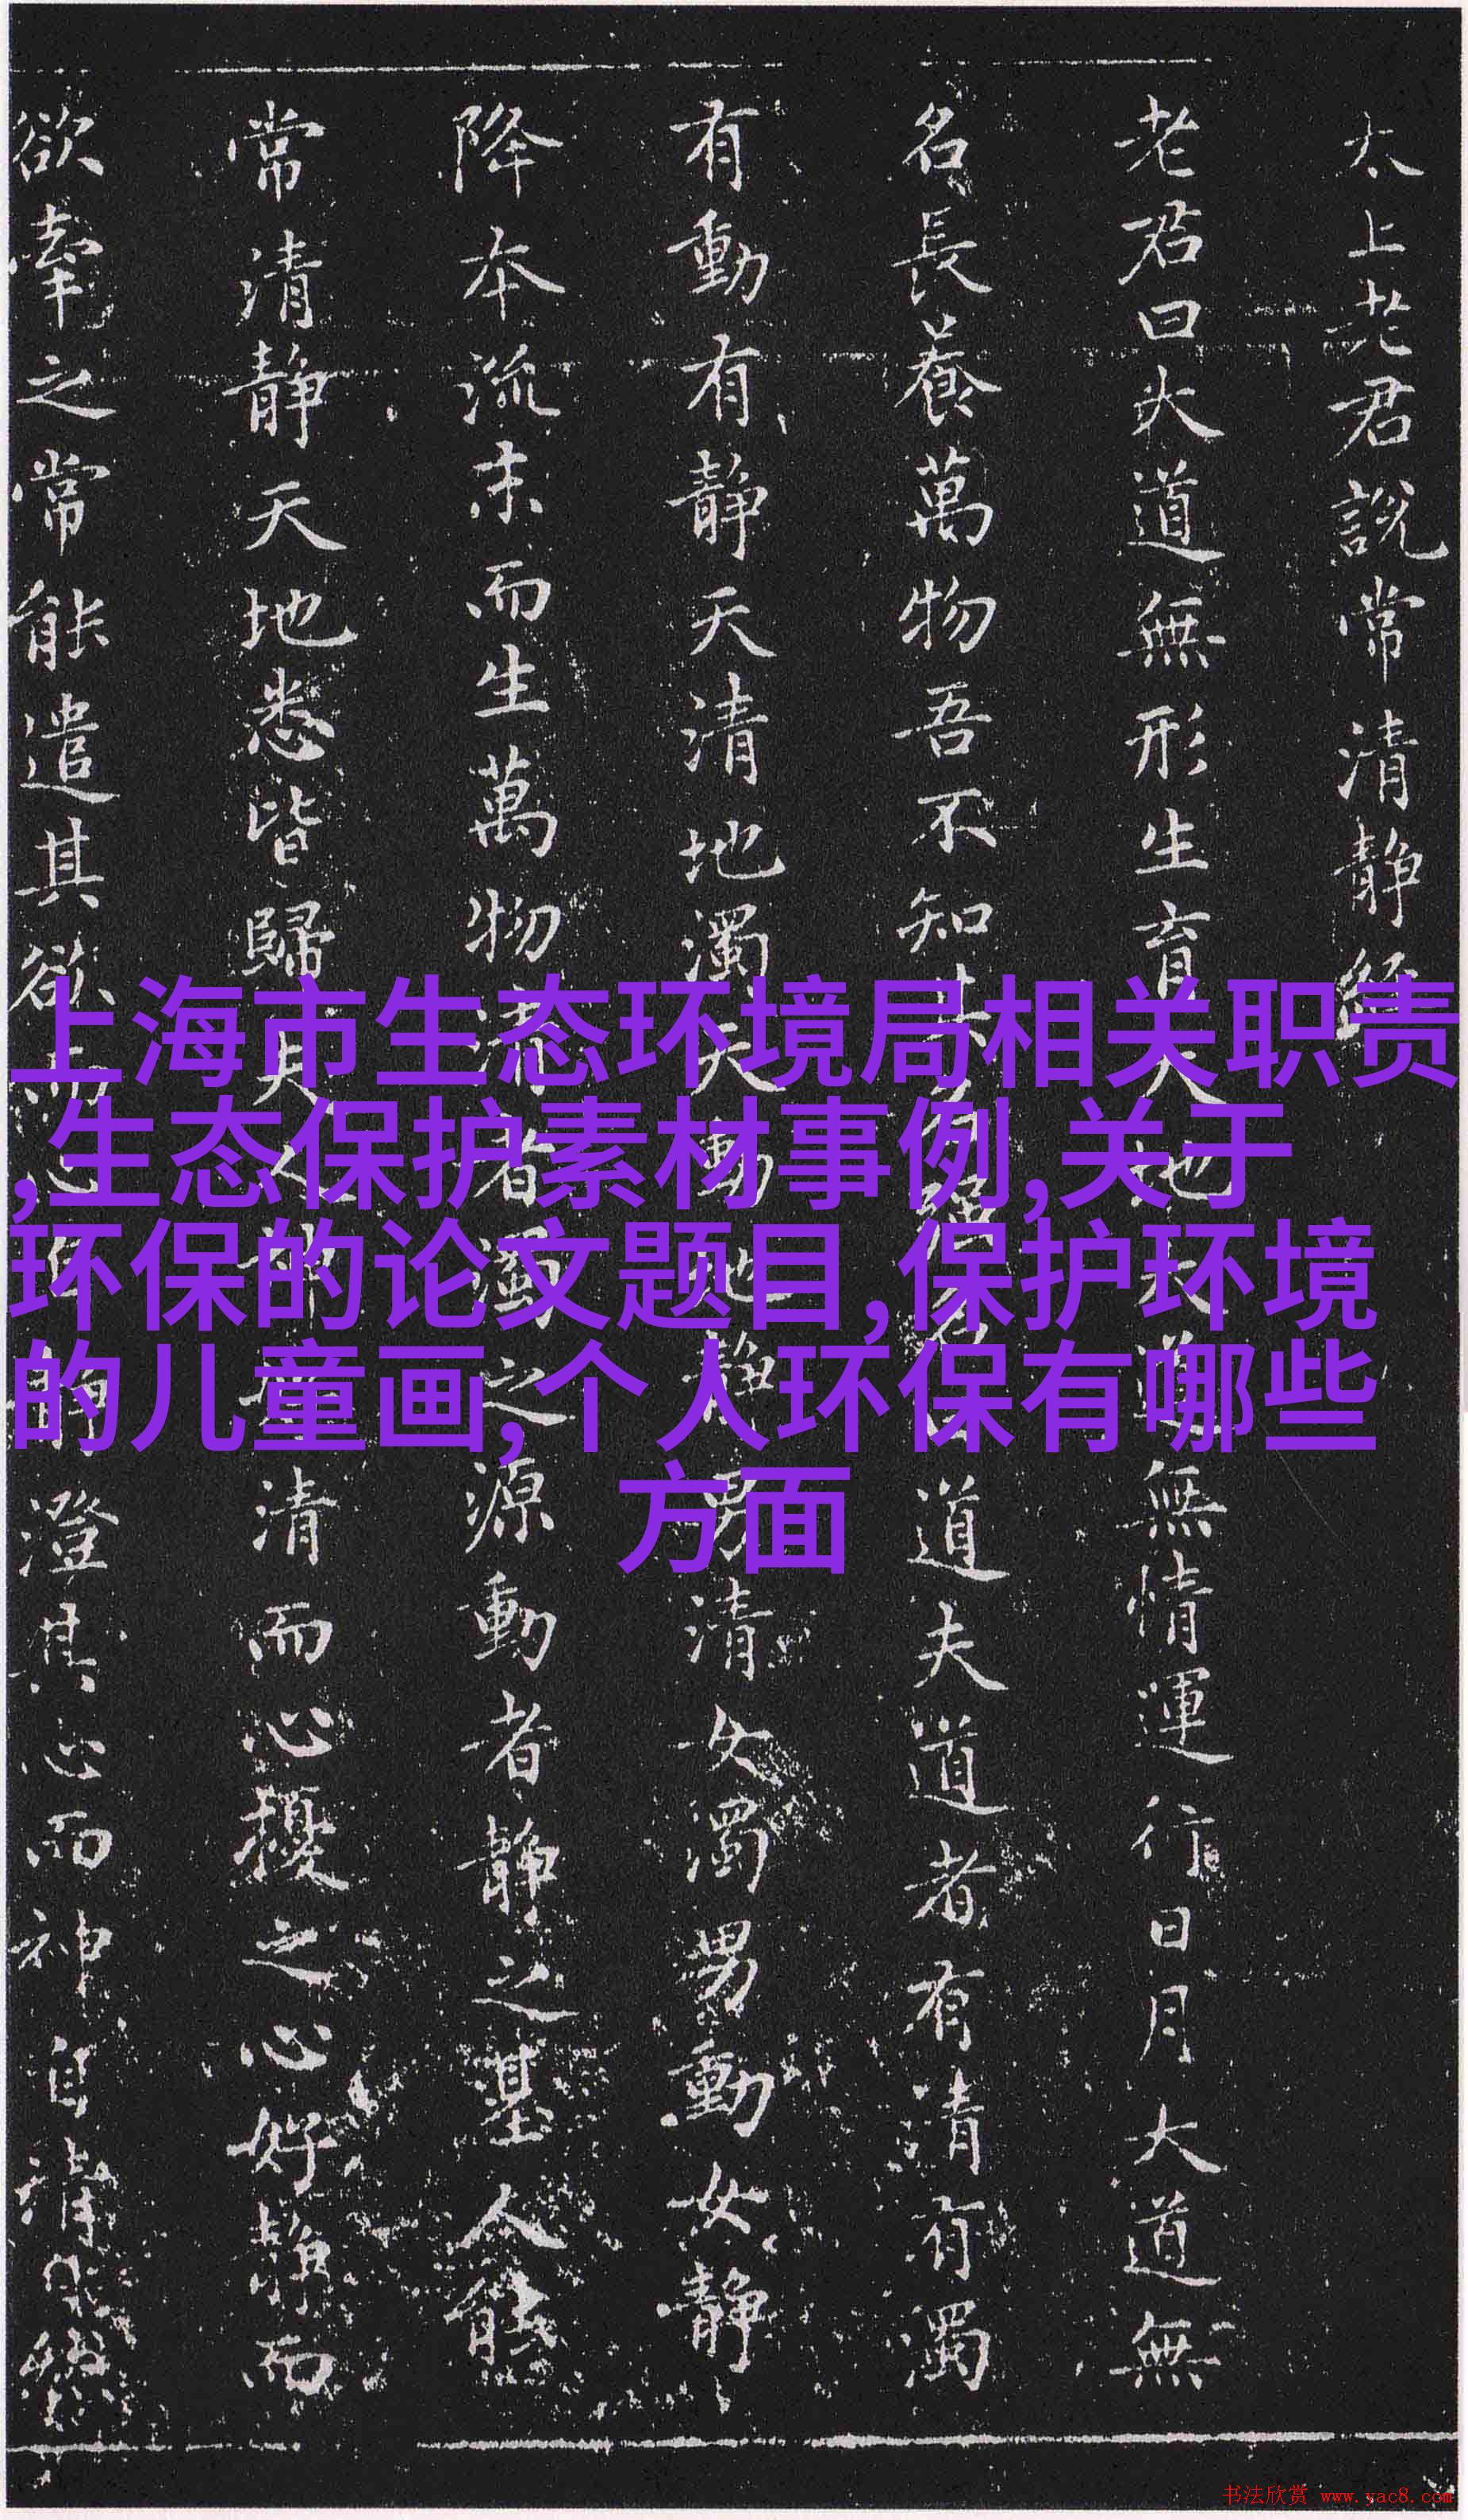 太上老君說常清静經
老君曰大道無形生育天地大道無情運行日月大道無
名長養萬物吾不知其名強名曰道夫道者有清有濁
有動有静天清地濁天動地静男清女濁男動女静
降本流末而生萬物清者濁之源動者静之基人能
常清静天地悉皆歸夫人神好清而心擾之心好静而
欲牽之常能遣其欲而心自静澄其心而神自清自然
上海市生态环境局相关职责
,生态保护素材事例,关于
环保的论文题目,保护环境
的儿童画,个人环保有哪些
方面
书法欣赏 www.yac8.com